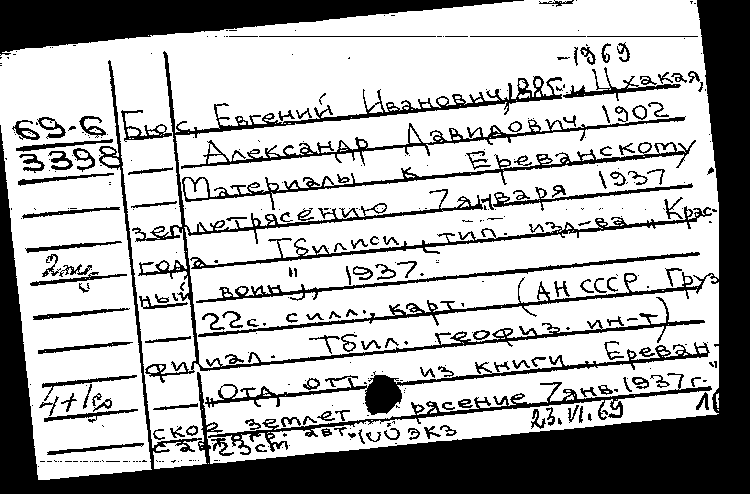 -1969
69-6 Бюс, Евгений Иванович, и Цхакая,
3398 Александр Давидович, 1902
Материалы к Ереванскому
землетрясению 7 января 1937
года. Тбилиси, тип. изд-ва „Крас-
ный воин", 1937.
22с. с илл., карт. (АН СССР. Груз.
филиал. Тбил. геофиз. ин-т)
„Отд. отт. из книги „Ереван-
ское землетрясение 7 янв. 1937 г."
с авт. 100 экз 23.VI.69
23cm